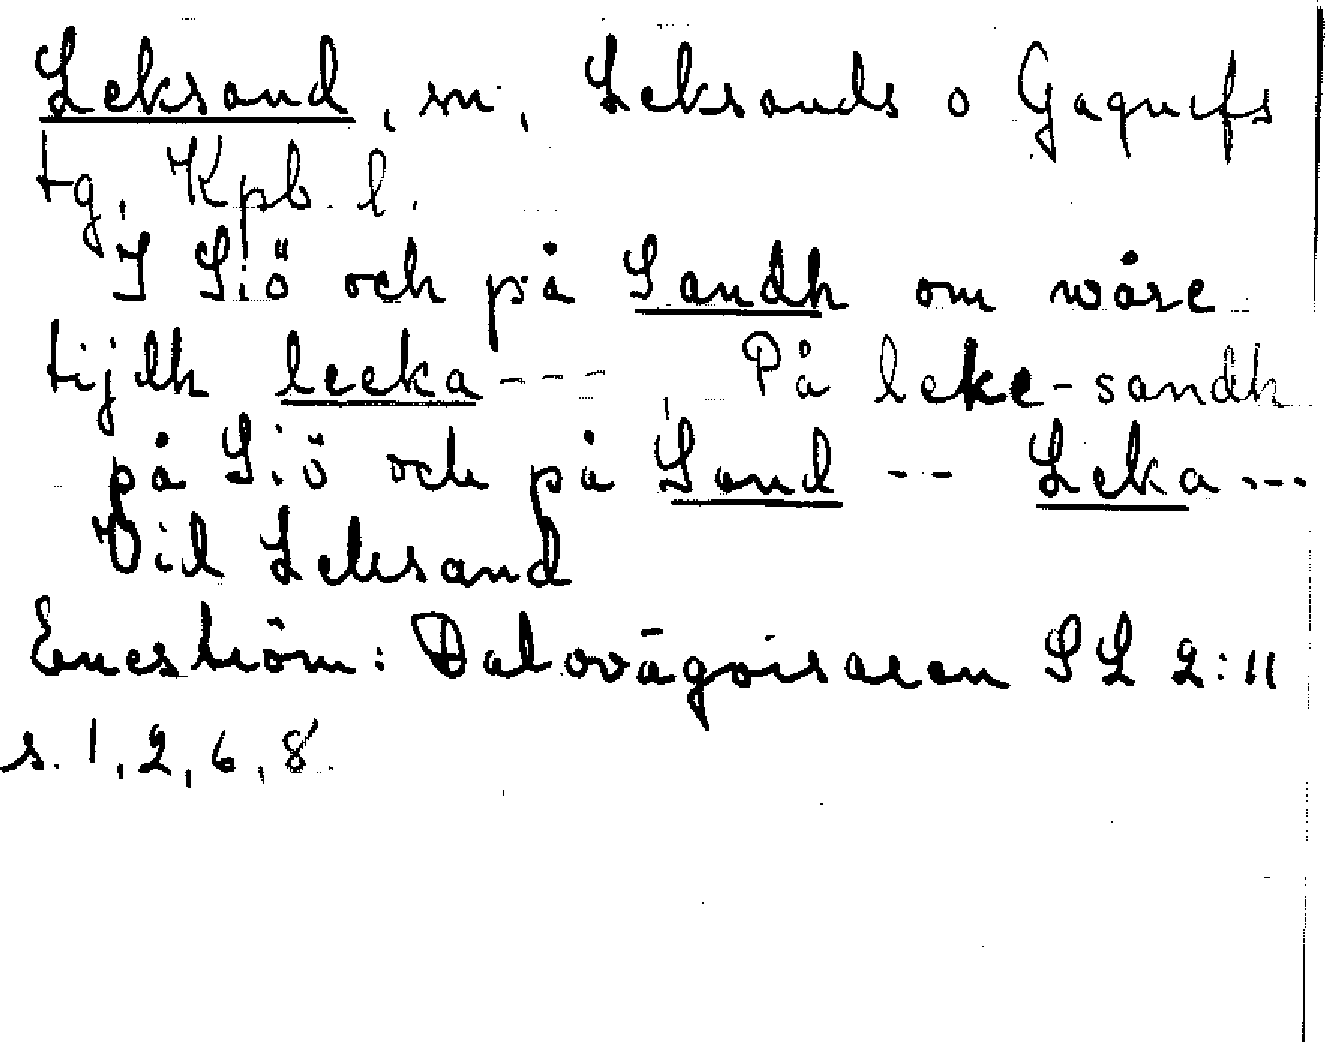 Leksand, sn, Leksands o Gagnefs
tg, Kpb. l.
I Siö och på Sandh om wåre
tijdh leeka --- På leke-sandh
på Siö och på Sand -- Leka ---
Vid Leksand
Eneström: Dalovägvisaren SL 2:11
s. 1, 2, 6, 8.